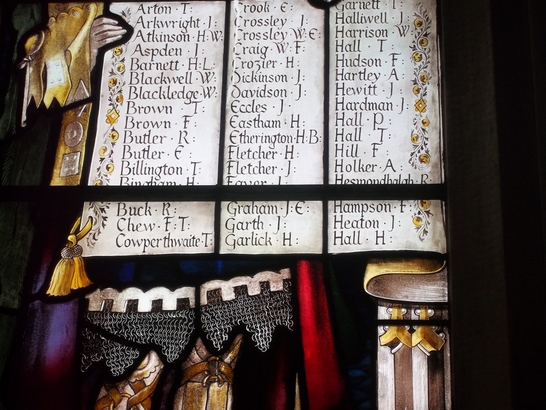 Arton · T:
Arkwright · J:
Atkinson · H · W:
Aspden · J:
Barnett · H · L
Blackwell · W:
Blackledge · W:
Brown · T:
Brown · F:
Butler · R:
Butler · E:
Billington · T:
Bingham · H:
Buck · R:
Chew · F : T:
Cowperthwaite · T:
Crook · E:
Crossley · J:
Crossley · W : E:
Craig · W · F:
Crozier · H:
Dickinson · J:
Davidson · J:
Eccles · J:
Eastham · H:
Etherington · H · B:
Fletcher · H:
Fletcher · J:
Graham · J : E:
Garth · J:
Garlick · H:
Garnett · J:
Halliwell · J:
Harrison · W
Hall · T
Hudson · F:
Hartley · A:
Hewitt · J:
Hardman · J:
Hall · P:
Hall · T:
Hill · F
Holker · A:
Hesmondhalgh · R:
Hampson · F:
Heaton · J:
Hall · H: